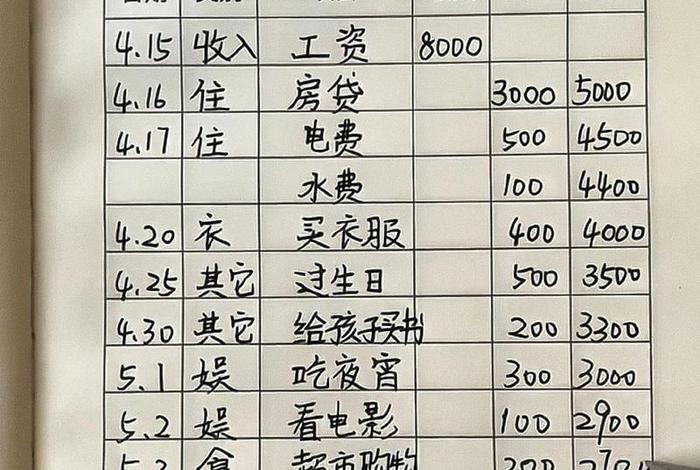 4.15 收入 工资 8000
4.16 住 房贷 3000 5000
4.17 住 电费 500 4500
水费 100 4400
4.20 衣 买衣服 400 4000
4.25 其它 过生日 500 3500
4.30 其它 给孩子买书 200 3300
5.1 娱 吃夜宵 300 3000
5.2 娱 看电影 100 2900
食 超市购物